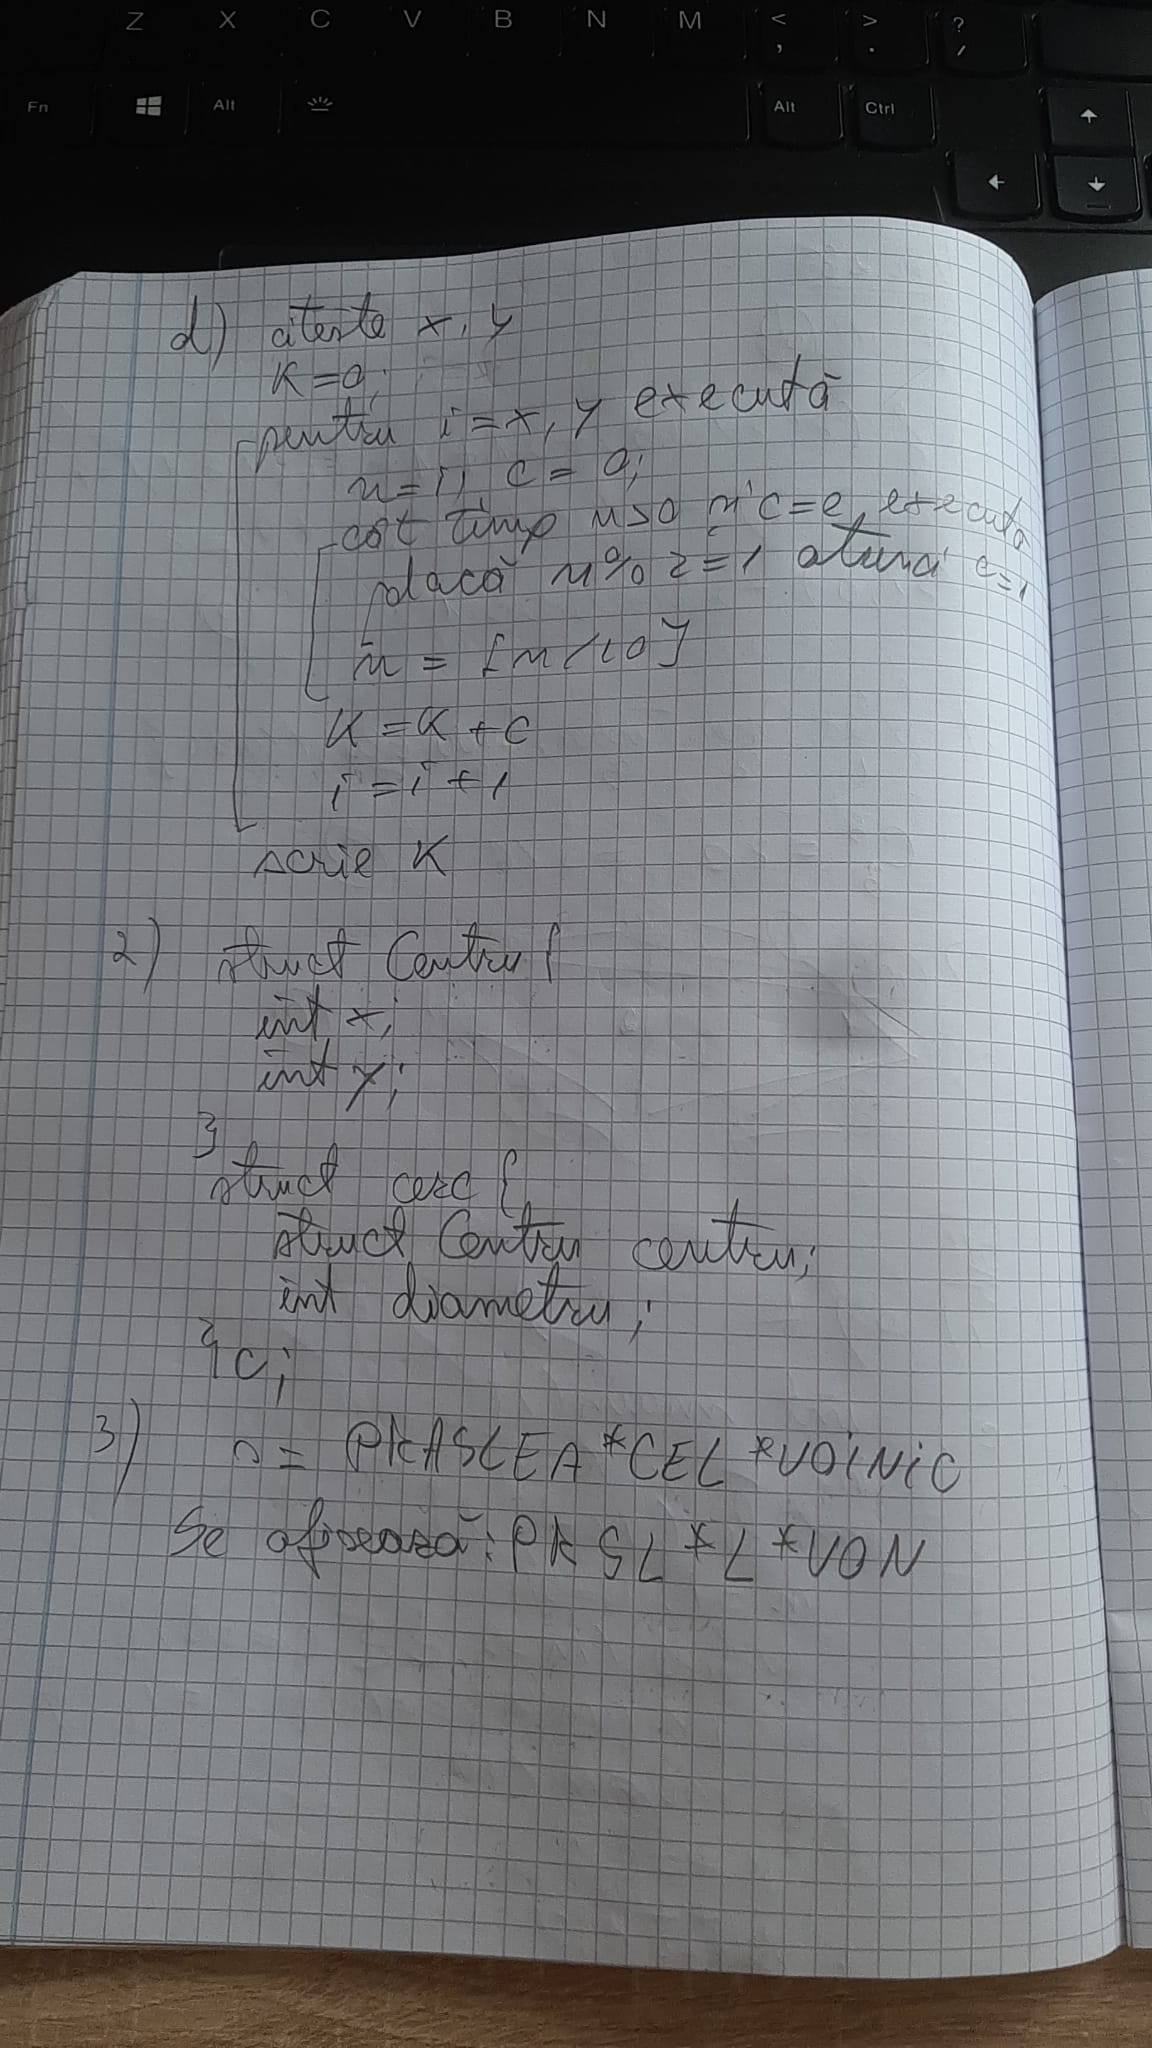 Z X C V B N M < , > . ? /
Fn Alt Alt Ctrl
d) citește x, y
K=0;
pentru i=x,y execută
n=i; c=0;
cât timp n>0 și c=0 execută
dacă n%2=1 atunci c=1
n = [n/10]
K=K+c
i=i+1
scrie K
2) struct Centru{
int x;
int y;
}
struct cerc {
struct Centru centru;
int diametru;
}c;
3) s= PRASLEA*CEL*VOINIC
Se afisează: PR SL*L*VON